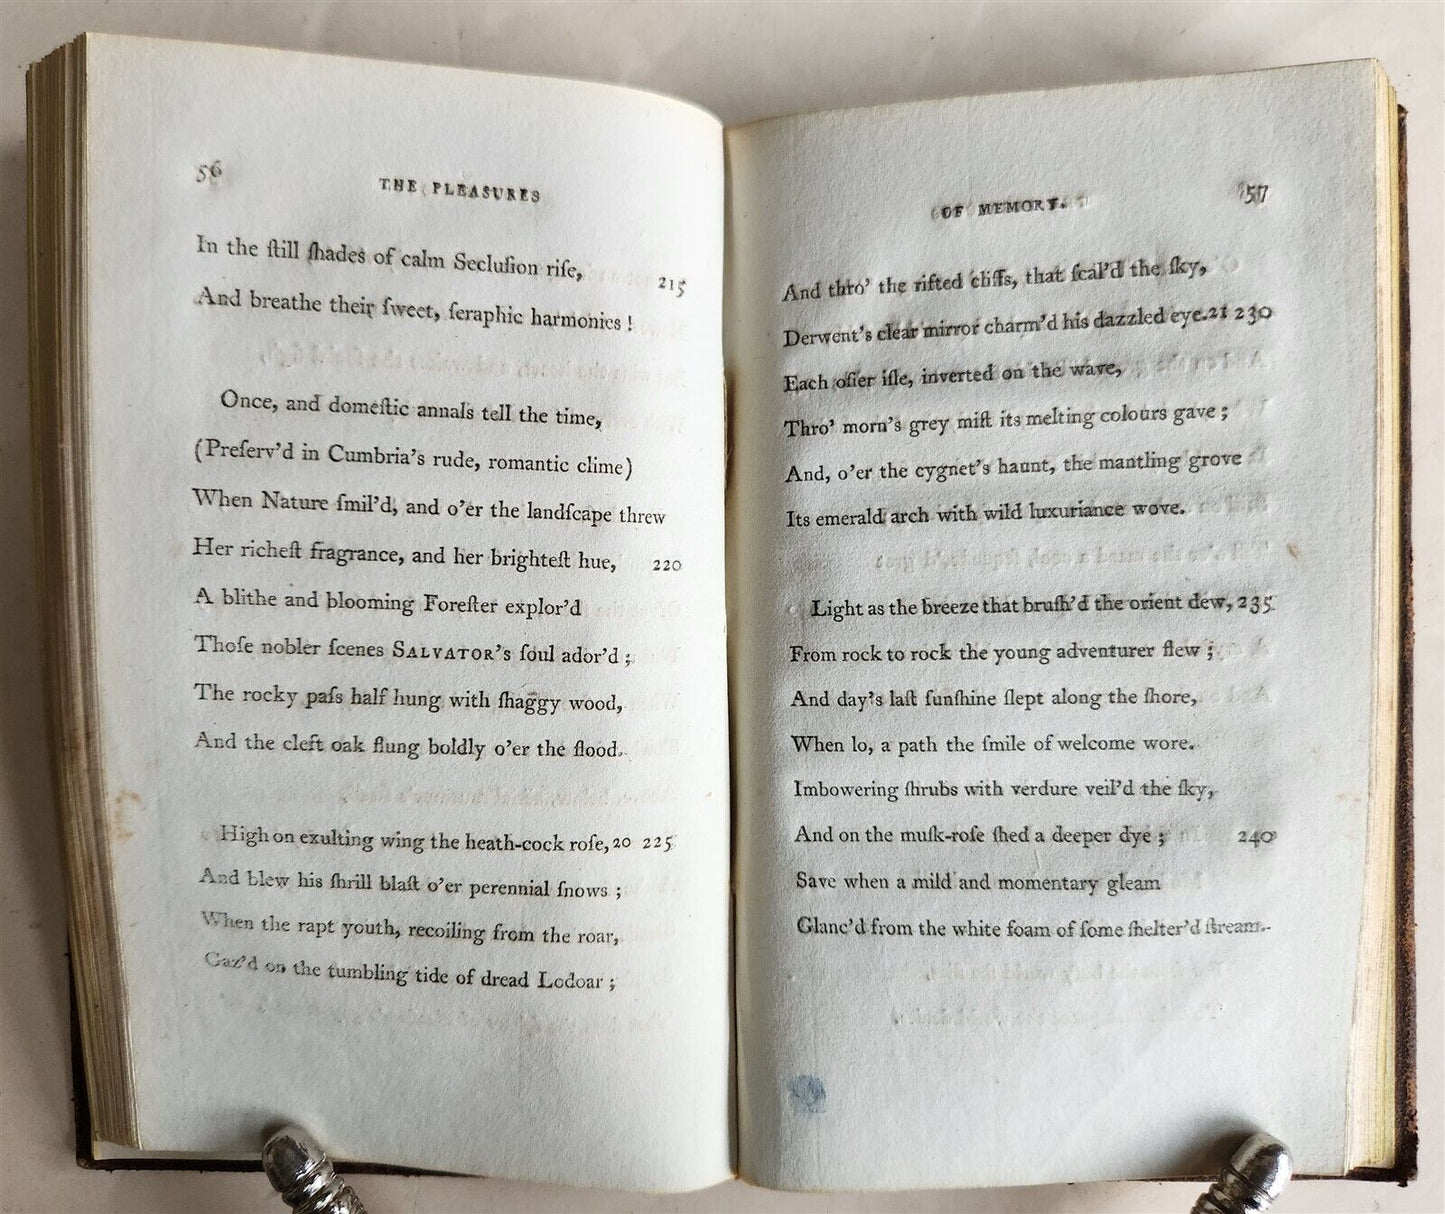 56
THE PLEASURES
In the ſtill ſhades of calm Secluſion riſe,
215
And breathe their ſweet, ſeraphic harmonies !
Once, and domeſtic annals tell the time,
(Preſerv'd in Cumbria's rude, romantic clime)
When Nature ſmil'd, and o'er the landſcape threw
Her richeſt fragrance, and her brighteſt hue, 220
A blithe and blooming Foreſter explor'd
Thoſe nobler ſcenes SALVATOR'S ſoul ador'd ;
The rocky paſs half hung with ſhaggy wood,
And the cleft oak flung boldly o'er the flood.
High on exulting wing the heath-cock roſe, 20 225
And blew his ſhrill blaſt o'er perennial ſnows ;
When the rapt youth, recoiling from the roar,
Gaz'd on the tumbling tide of dread Lodoar ;
OF MEMORY.
57
And thro' the rifted cliffs, that ſcal'd the ſky,
Derwent's clear mirror charm'd his dazzled eye.21 230
Each oſier iſle, inverted on the wave,
Thro' morn's grey miſt its melting colours gave ;
And, o'er the cygnet's haunt, the mantling grove
Its emerald arch with wild luxuriance wove.
Light as the breeze that bruſh'd the orient dew, 235
From rock to rock the young adventurer flew ;
And day's laſt ſunſhine ſlept along the ſhore,
When lo, a path the ſmile of welcome wore.
Imbowering ſhrubs with verdure veil'd the ſky,
And on the muſk-roſe ſhed a deeper dye ; 240
Save when a mild and momentary gleam
Glanc'd from the white foam of ſome ſhelter'd ſtream.